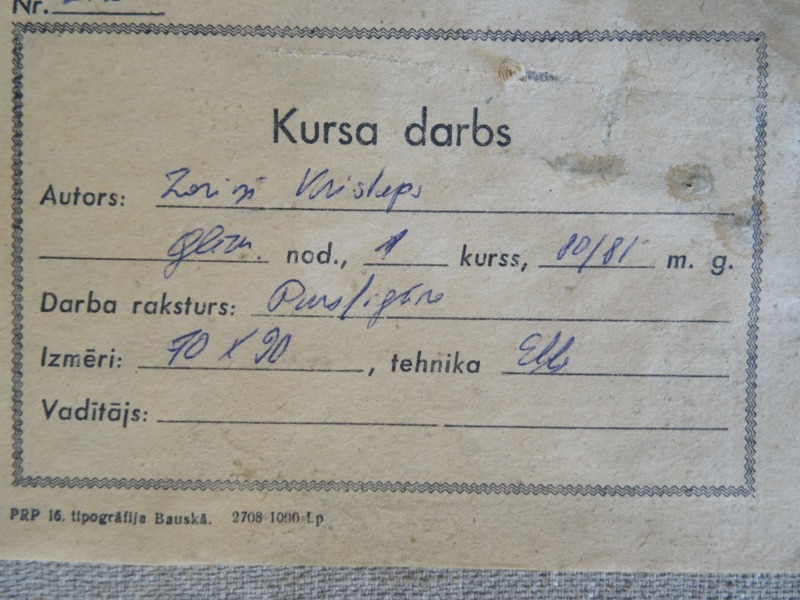 Nr.
Kursa darbs
Autors: Zariņš Kristaps
glezn. nod., 1 kurss, 80/81 m. g.
Darba raksturs: Pusfigūra
Izmēri: 70 x 90, tehnika Eļļa
Vadītājs:
PRP 16. tipogrāfija Bauskā. 2708 1000 Lp